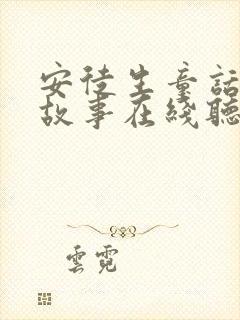 安徒生童話
故事在綫聽
雲霓